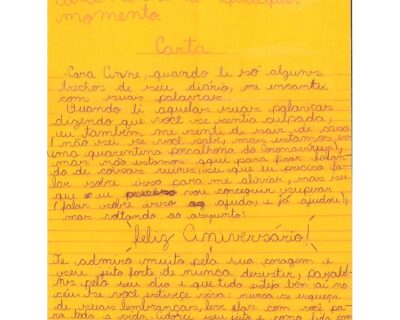 momento.
Carta
Cara Anne, quando li só alguns
trechos de seu diário, me encantei
com suas palavras.
Quando li aquelas suas palavras
dizendo que você se sentia culpada,
eu também me senti de sair de casa
(não sei se você sabe, mas estamos em
uma quarentena por causa do coronavírus),
mas não estamos aqui para ficar falan-
do de coisas ruins, sei que eu preciso fa-
lar sobre isso para me aliviar, mas sei
que eu vou conseguir superar
(falar sobre isso ajuda, e já ajudou),
mas voltando ao assunto:
feliz Aniversário!
Te admiro muito pela sua coragem e
seu jeito forte de nunca desistir, parabé-
ns pelo seu dia e que tudo esteja bem aí no
céu. Se você estivesse viva: nunca se esqueça
de suas lembranças, leve elas com você pa-
ra toda a vida. Adorei seu jeito e como lida com